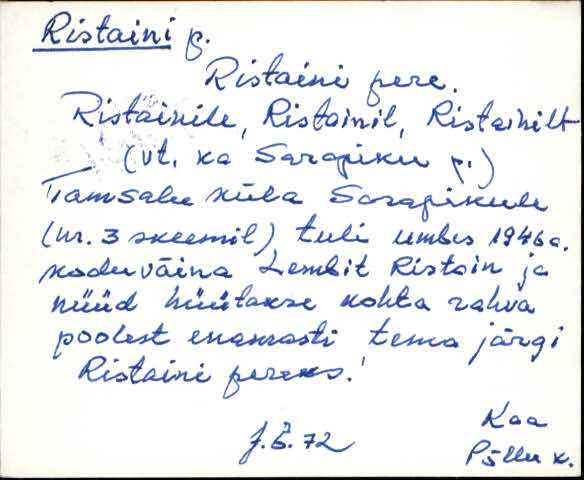 Ristaini p.
Ristaini pere.
Ristainile, Ristainil, Ristainilt
(vt. ka Sarapiku p.)
Tamsalu küla Sarapikule
(nr. 3 skeemil) tuli umbes 1946 a.
koduväina Lembit Ristain ja
nüüd hüütakse kohta rahva
poolest enamasti tema järgi
Ristaini pereks.
J.E. 72
Kaa
Põllu k.